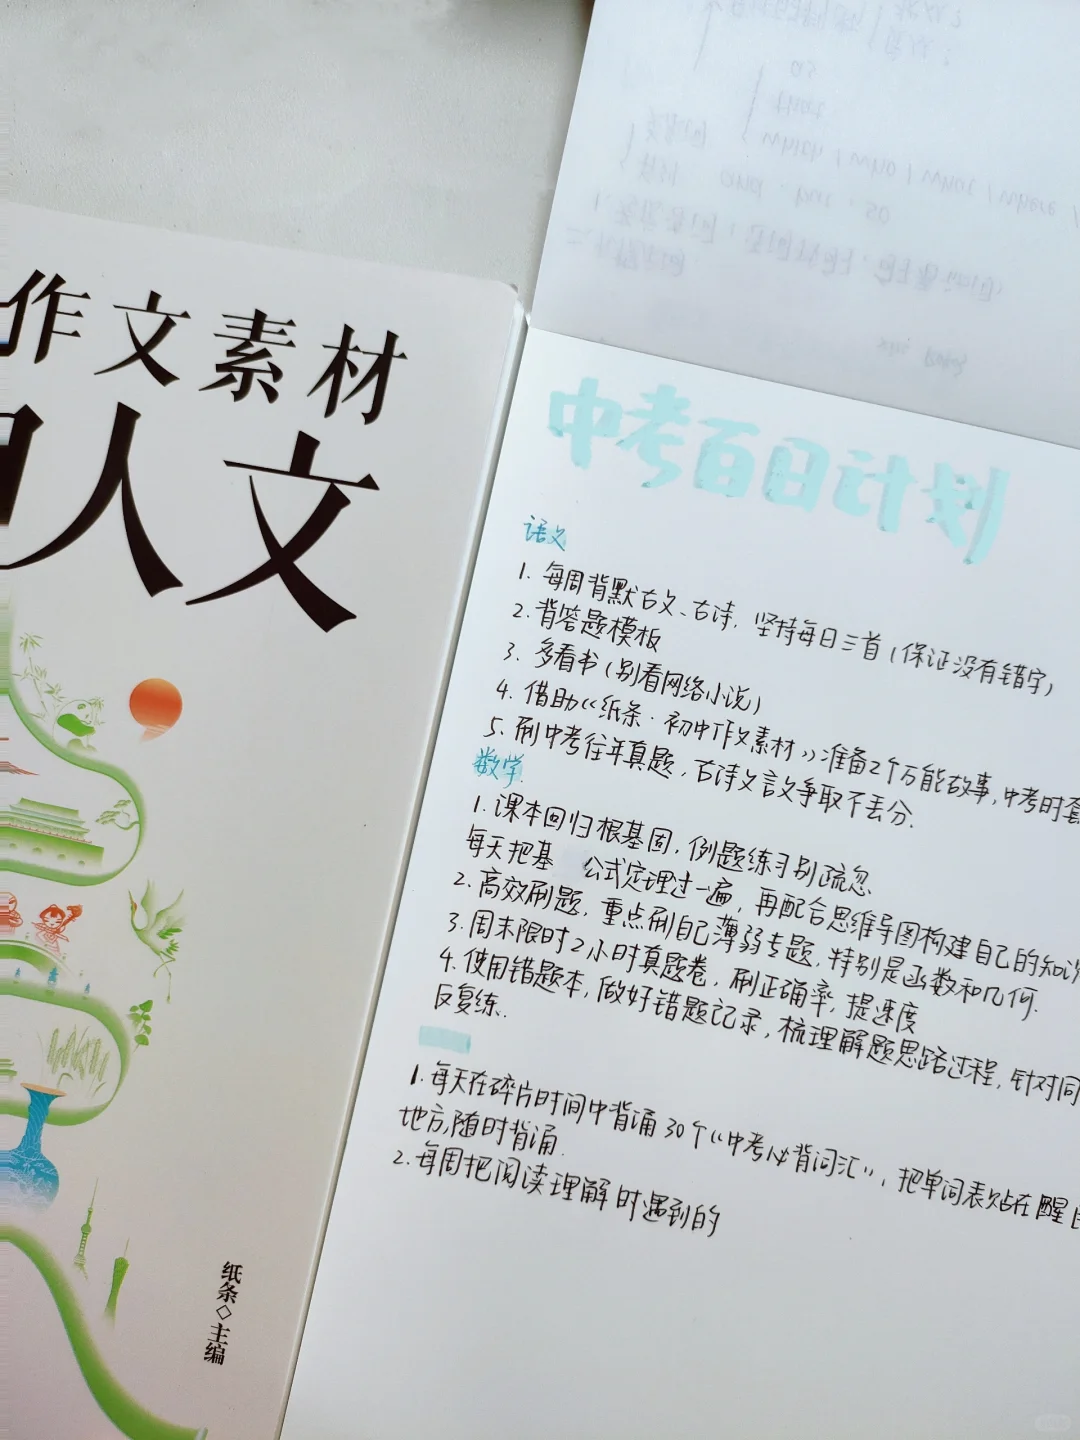 作文素材
人文
纸条◇主编
as
that
which / who / what / where /
and · but · so
中考百日计划
语文
1. 每周背默古文、古诗, 坚持每日三首(保证没有错字)
2. 背答题模板
3. 多看书(别看网络小说)
4. 借助《纸条·初中作文素材》准备2个万能故事,中考时套
5. 刷中考往年真题, 古诗文言文争取不丢分.
数学
1. 课本回归根基固, 例题练习别疏忽
每天把基 公式定理过一遍, 再配合思维导图构建自己的知识
2. 高效刷题, 重点刷自己薄弱专题, 特别是函数和几何.
3. 周末限时2小时真题卷, 刷正确率, 提速度
4. 使用错题本, 做好错题记录, 梳理解题思路过程, 针对同
反复练.
1. 每天在碎片时间中背诵30个“中考必背词汇”, 把单词表贴在醒目
地方,随时背诵.
2. 每周把阅读理解时遇到的